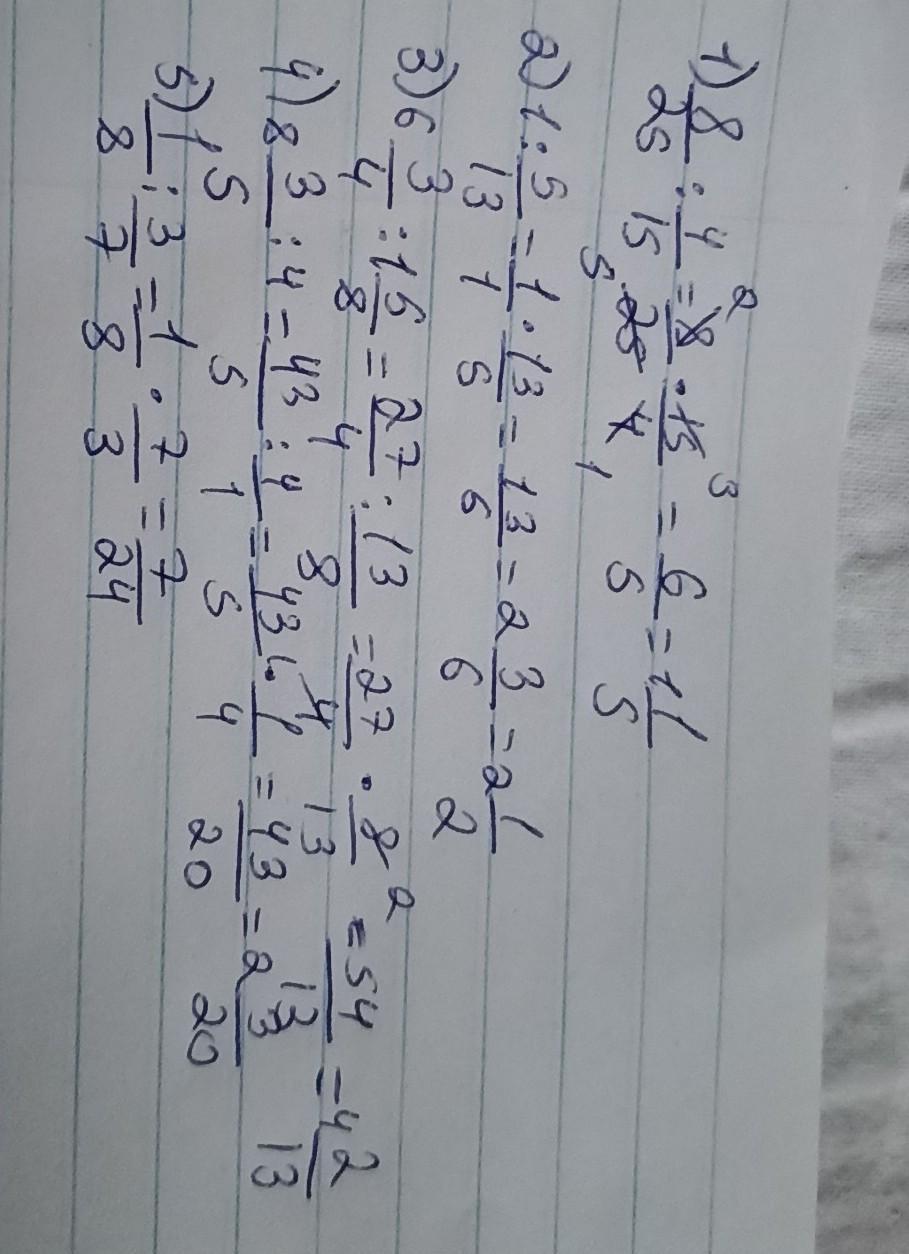 1) 8/25 : 4/15 = 8/25 · 15/4 = 6/5 = 1 1/5
2) 1 : 5/13 = 1/1 · 13/5 = 13/6 = 2 3/6 = 2 1/2
3) 6 3/4 : 1 5/8 = 27/4 : 13/8 = 27/4 · 8/13 = 54/13 = 4 2/13
4) 8 3/5 : 4 = 43/5 : 4/1 = 43/5 · 1/4 = 43/20 = 2 3/20
5) 1/8 : 3/7 = 1/8 · 7/3 = 7/24